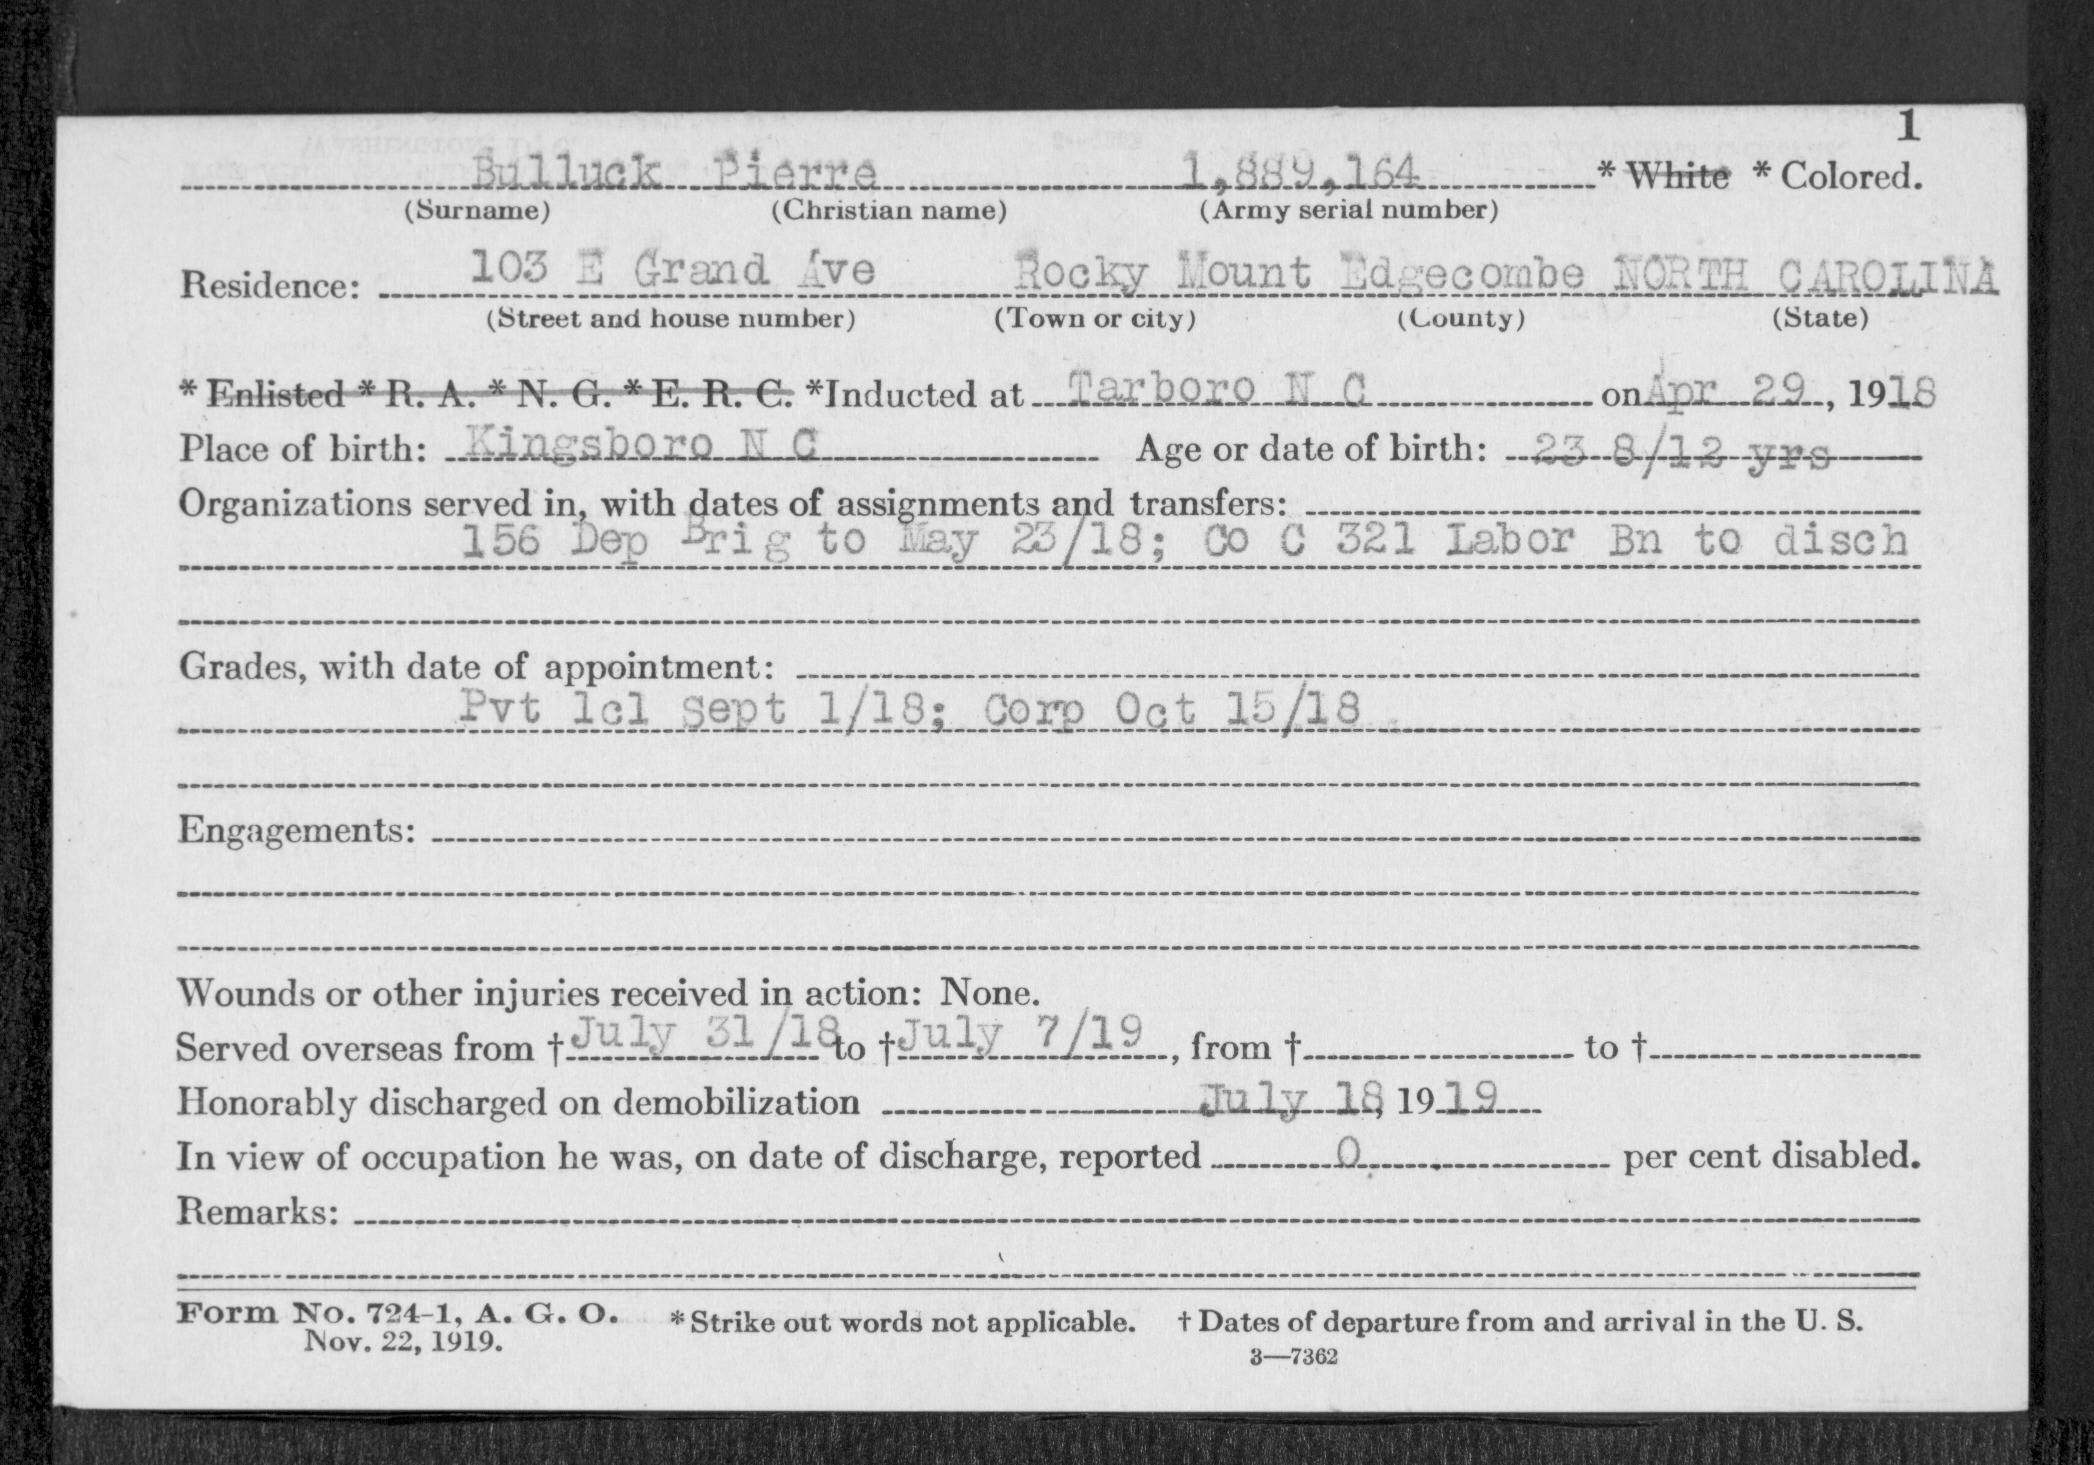 1
Bulluck Pierre 1,889,164 * White * Colored.
(Surname) (Christian name) (Army serial number)
Residence: 103 E Grand Ave Rocky Mount Edgecombe NORTH CAROLINA
(Street and house number) (Town or city) (County) (State)
* Enlisted * R. A. * N. G. * E. R. C. *Inducted at Tarboro N C on Apr 29, 1918
Place of birth: Kingsboro N C Age or date of birth: 23 8/12 yrs
Organizations served in, with dates of assignments and transfers:
156 Dep Brig to May 23/18; Co C 321 Labor Bn to disch
Grades, with date of appointment:
Pvt 1cl Sept 1/18; Corp Oct 15/18
Engagements:
Wounds or other injuries received in action: None.
Served overseas from † July 31/18 to † July 7/19, from † to †
Honorably discharged on demobilization July 18, 1919
In view of occupation he was, on date of discharge, reported 0 per cent disabled.
Remarks:
Form No. 724-1, A. G. O. * Strike out words not applicable. † Dates of departure from and arrival in the U. S.
Nov. 22, 1919.
3—7362